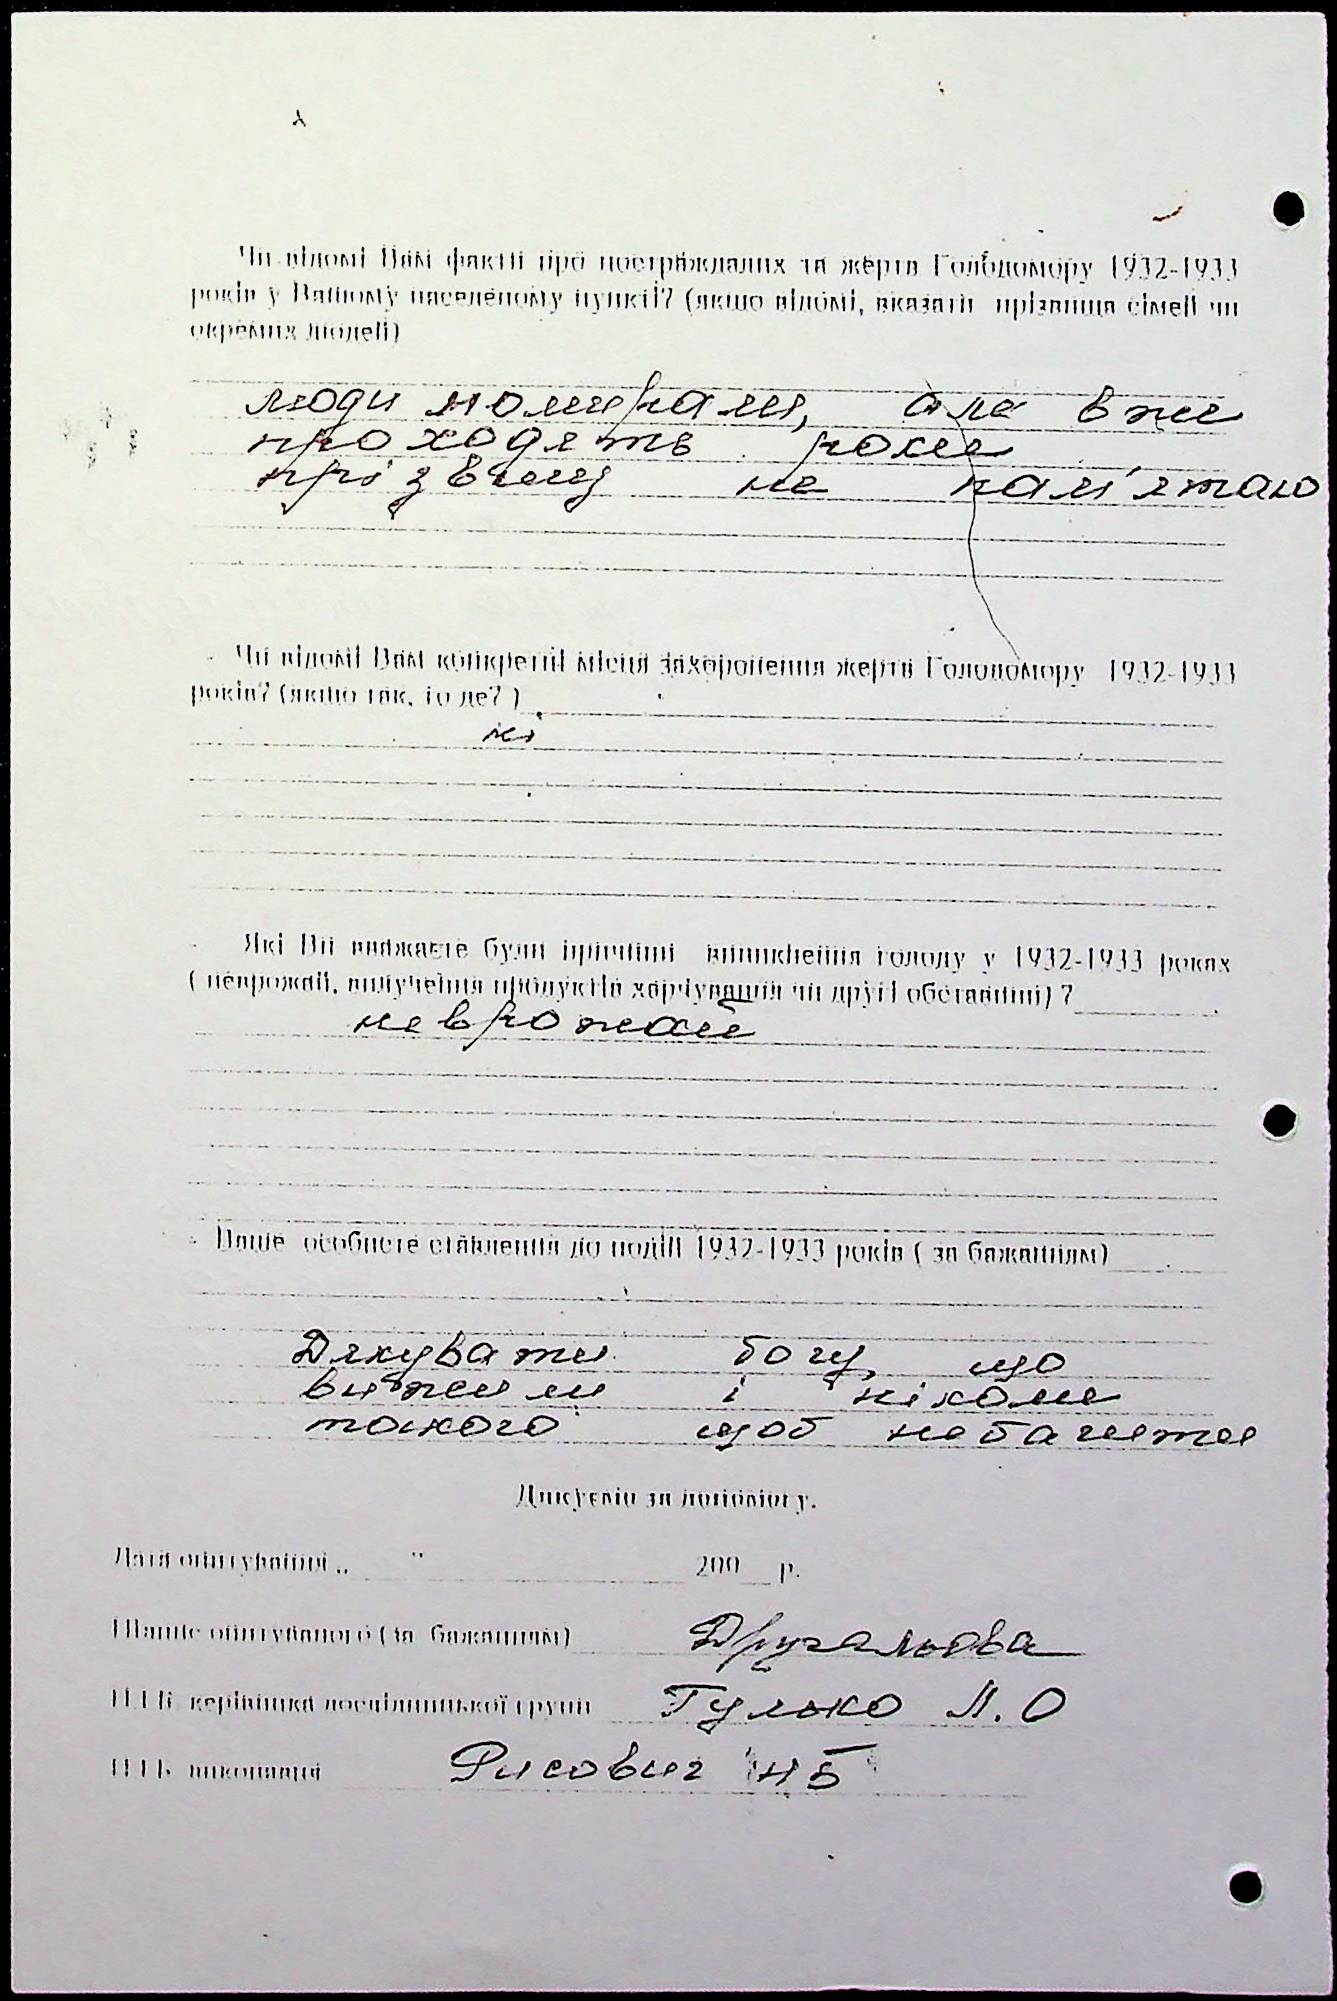 Чи відомі Вам факти про постраждалих та жертв Голодомору 1932-1933
років у Вашому населеному пункті? (якщо відомі, вказати прізвища сімей чи
окремих людей)
люди помирали, але вже
проходять роки
прізвищ не пам'ятаю
Чи відомі Вам конкретні місця захоронення жертв Голодомору 1932-1933
років? (якщо так, то де?)
ні
Які Ви вважаєте були причини виникнення голоду у 1932-1933 роках
(неврожай, вилучення продуктів харчування чи другі обставини)?
неврожай
Ваше особисте ставлення до подій 1932-1933 років (за бажанням)
Дякувати богу, що
вижили і ніколи
такого щоб не бачити
Дякуємо за допомогу.
Дата опитування „ " 200 р.
опитуваного (за бажанням)
П.І.Б. керівника дослідницької групи Гулько Л.О
П.І.Б. виконавця Рисович НБ